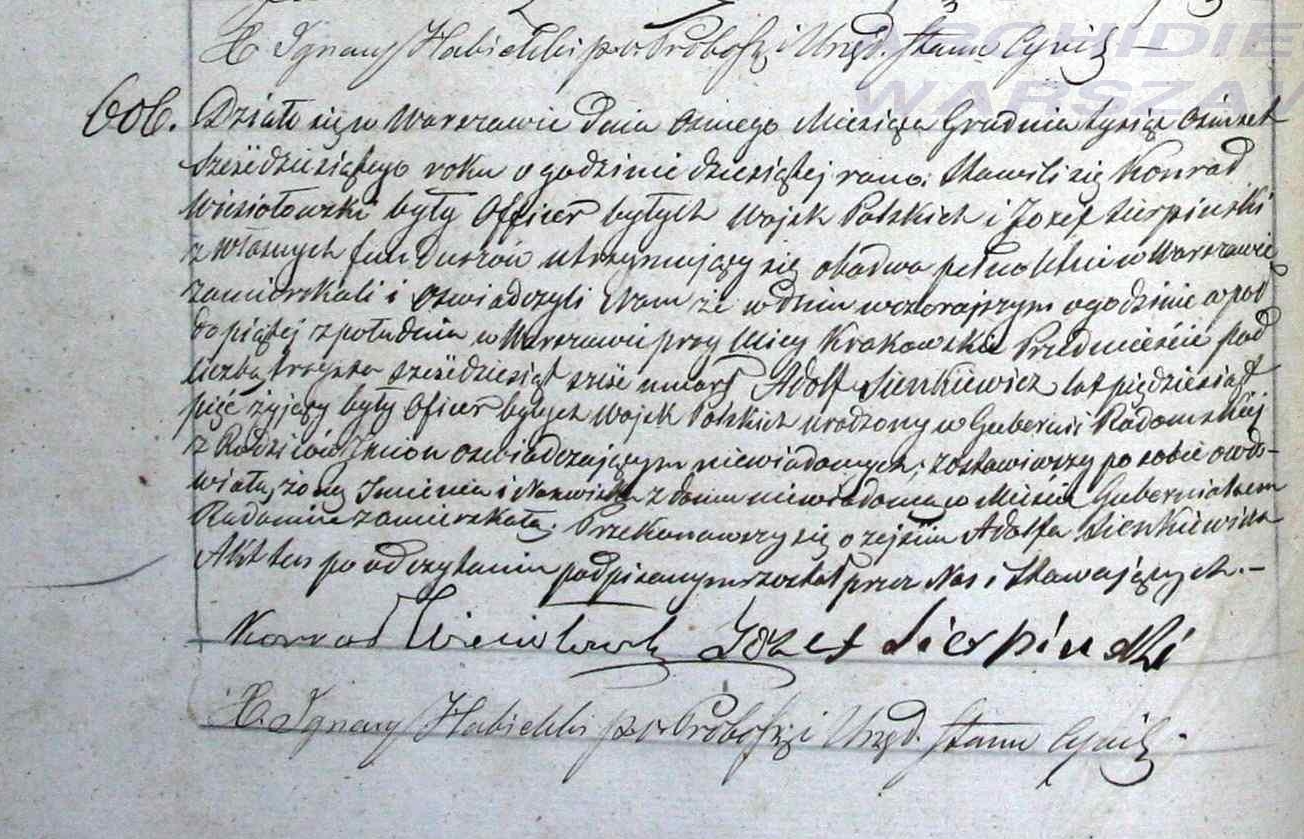 X. Ignacy Habielski p.o. Probosz. i Urzęd. Stanu Cywil.
ARCHIDIE
WARSZAW
606. Działo się w Warszawie dnia osmego Miesiąca Grudnia tysiąc osmset
sześćdziesiątego roku o godzinie dziesiątej rano: Stawili się Konrad
Wiesiołowski były Officer byłych Wojsk Polskich i Jozef Sierpinski
z własnych funduszów utrzymujący się obadwa pełnoletni w Warszawie
zamieszkali i oswiadczyli Nam że w dniu wczorajszym o godzinie wpół
do piątej z południa w Warszawie przy Ulicy Krakowskie Przedmieście pod
liczbą trzysta sześćdziesiąt sześć umarł Adolf Sienkiewicz lat pięćdziesiąt
pięć żyjący były Oficer byłych Wojsk Polskich urodzony w Gubernii Radomskiej
z Rodziców Imion oswiadczającym niewiadomych; zostawiwszy po sobie owdo-
wiałą żonę Imienia i Nazwiska z domu niewiadomą w Mieście Gubernialnem
Radomiu zamieszkałą. Przekonawszy się o zejściu Adolfa Sienkiewicza
Akt ten po odczytaniu podpisanym został przez Nas i Stawających.—
Konrad Wiesiołowski Jozef Sierpinski
X. Ignacy Habielski p.o. Probosz. i Urzęd. Stanu Cywil.